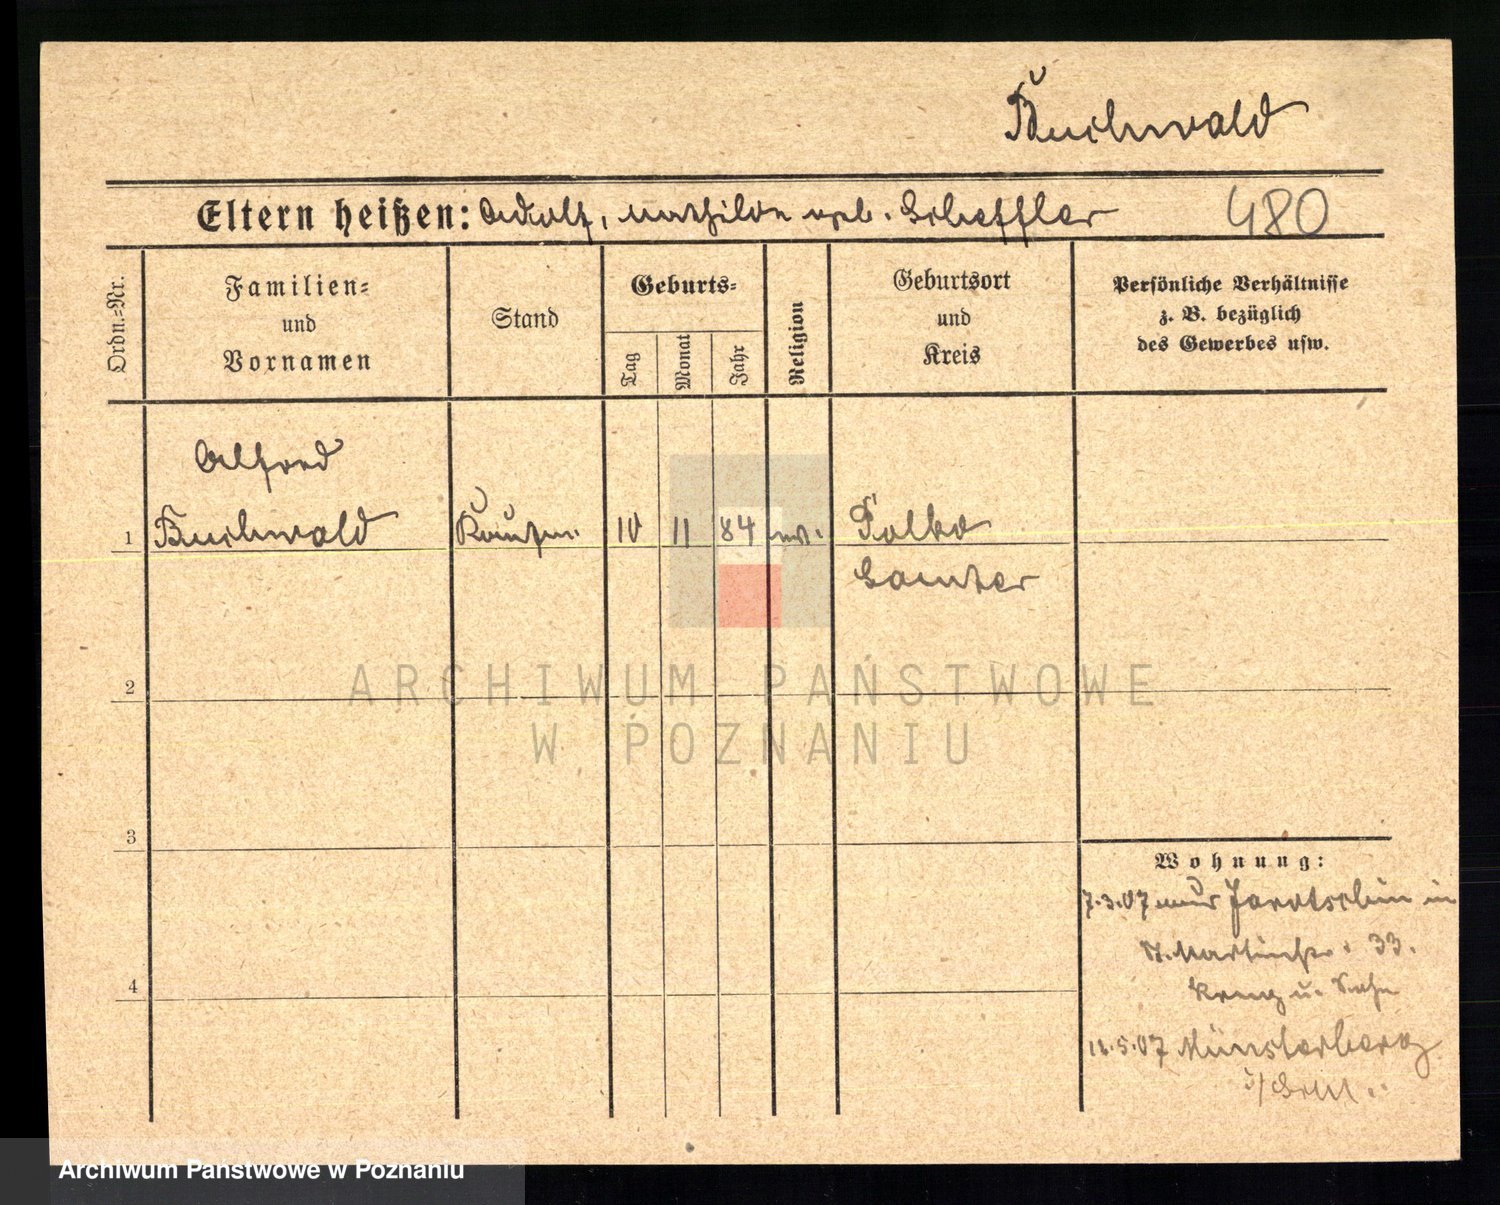 Buchwald
Eltern heißen: Adolf, Mathilde geb. Scheffler 480
Ordn.-Nr.
Familien-
und
Vornamen
Stand
Geburts-
Tag
Monat
Jahr
Religion
Geburtsort
und
Kreis
Persönliche Verhältnisse
z. B. bezüglich
des Gewerbes usw.
Alfred
1 Buchwald Kaufm. 10 11 84 ev.
Samter
2
ARCHIWUM PAŃSTWOWE
W POZNANIU
3
4
Wohnung:
7.3.07 aus Jarotschin in
St. Martinstr. 33.
u.
5.07 Münsterberg
i/Schl.
Archiwum Państwowe w Poznaniu